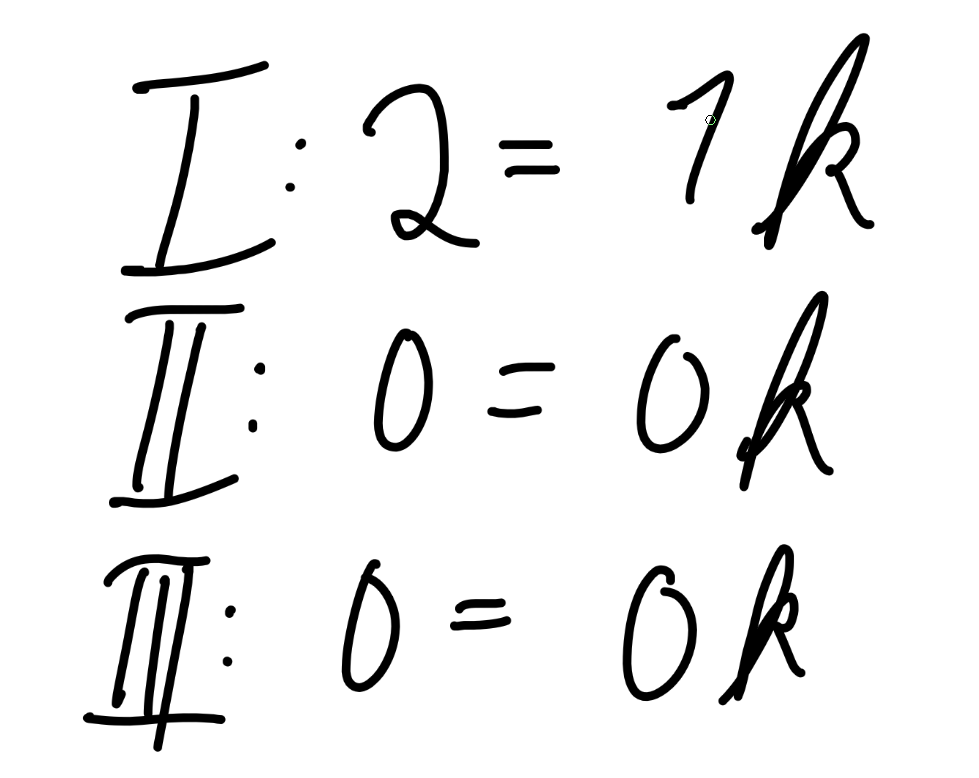 I: 2 = 1k
II: 0 = 0k
III: 0 = 0k